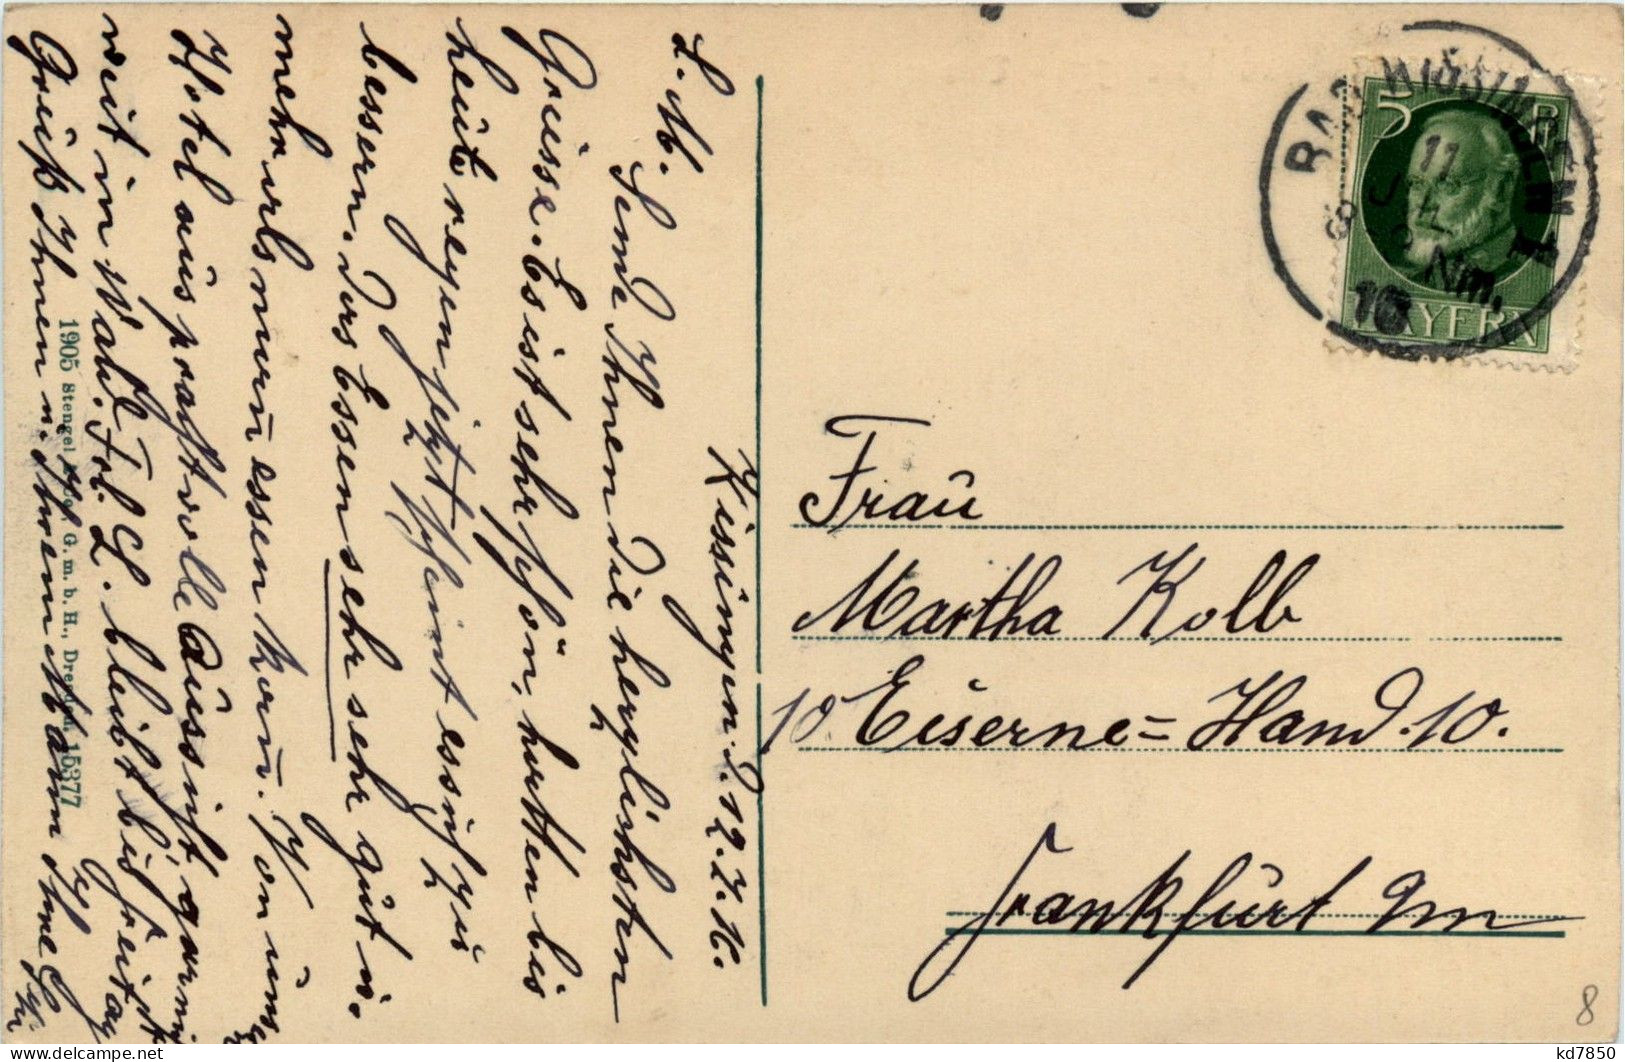 Kissingen. d. 12.7.16.
L. M.
Sende Ihnen die herzlichsten
Grüsse. Es ist sehr schön, hatten bis
heute regen jetzt scheint es sich zu
bessern. Das Essen sehr sehr gut u.
mehr als man essen kann. Von uns
Hotel aus prachtvolle Aussicht gar nicht
weit in Wald. Frl. L. bleibt bis Freitag
Grüß Ihnen u. Ihren Mann Ihre
1905 Stengel & Co., G. m. b. H., Dresden 15377
BAD KISSINGEN 1
11 JUL
8-9 Nm.
16
5
BAYERN
Frau
Martha Kolb
10 Eiserne=Hand. 10.
Frankfurt a/m
8
kd7850